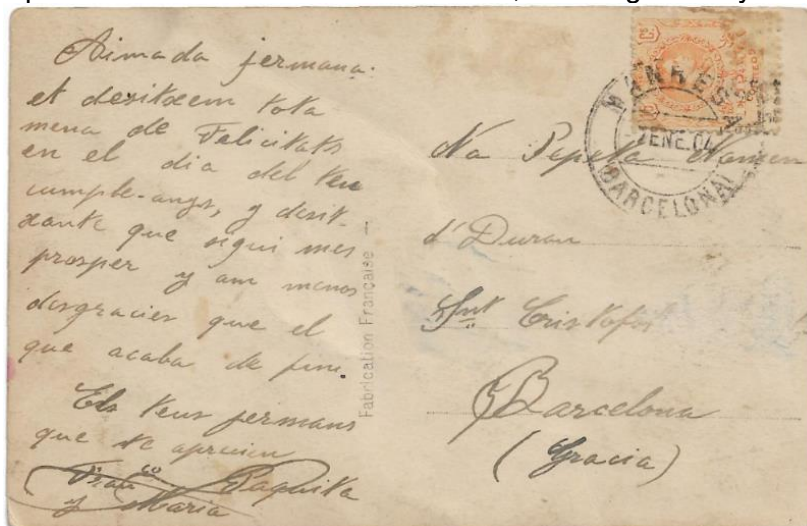 Aimada jermana:
et desitxem tota
mena de Felicitats
en el dia del teu
cumple-anys, y desit-
xante que sigui mes
prosper y am menos
desgracies que el
que acaba de fini.
Els teus jermans
que te aprecien
Paquita
y Maria
Fabrication Française
MANRESA
ENE.04
BARCELONA
Na Pepeta
d'Duran
Snt Cristofol
Barcelona
(Gracia)